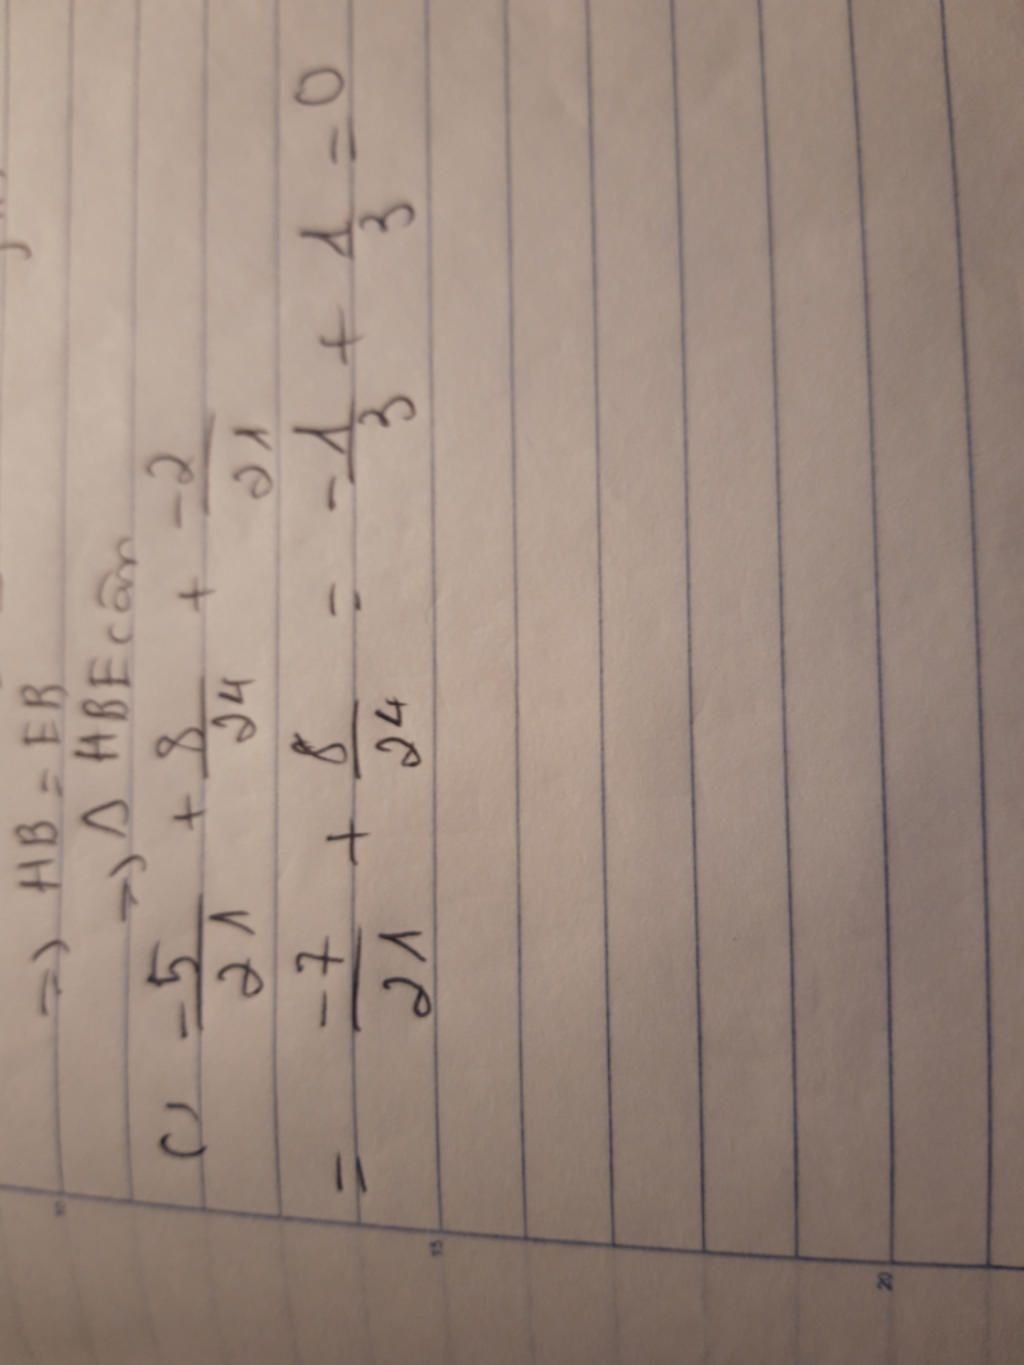 =) HB = EB
=) Δ HBE cân
C) -5/21 + 8/24 + -2/21
= -7/21 + 8/24 = -1/3 + 1/3 = 0
15
20